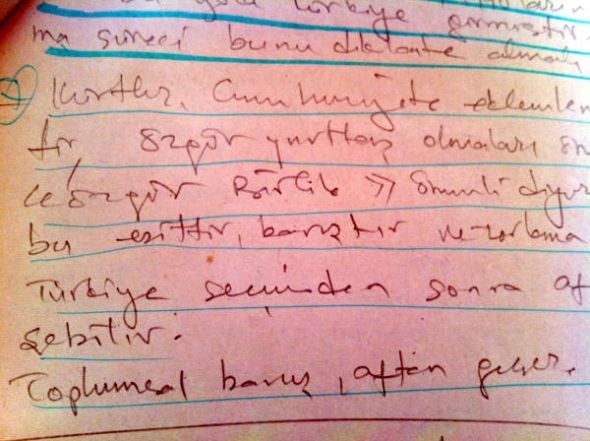 Türkiye girmiştir.
ma süreci bunu dikkate almalı
Kürtler, Cumhuriyete eklemlen
tir, özgür yurttaş olmaları
özgür Birlik
bu eşittir, barıştır ve
Türkiye seçimden sonra af
şebilir.
Toplumsal barış, aftan geçer.